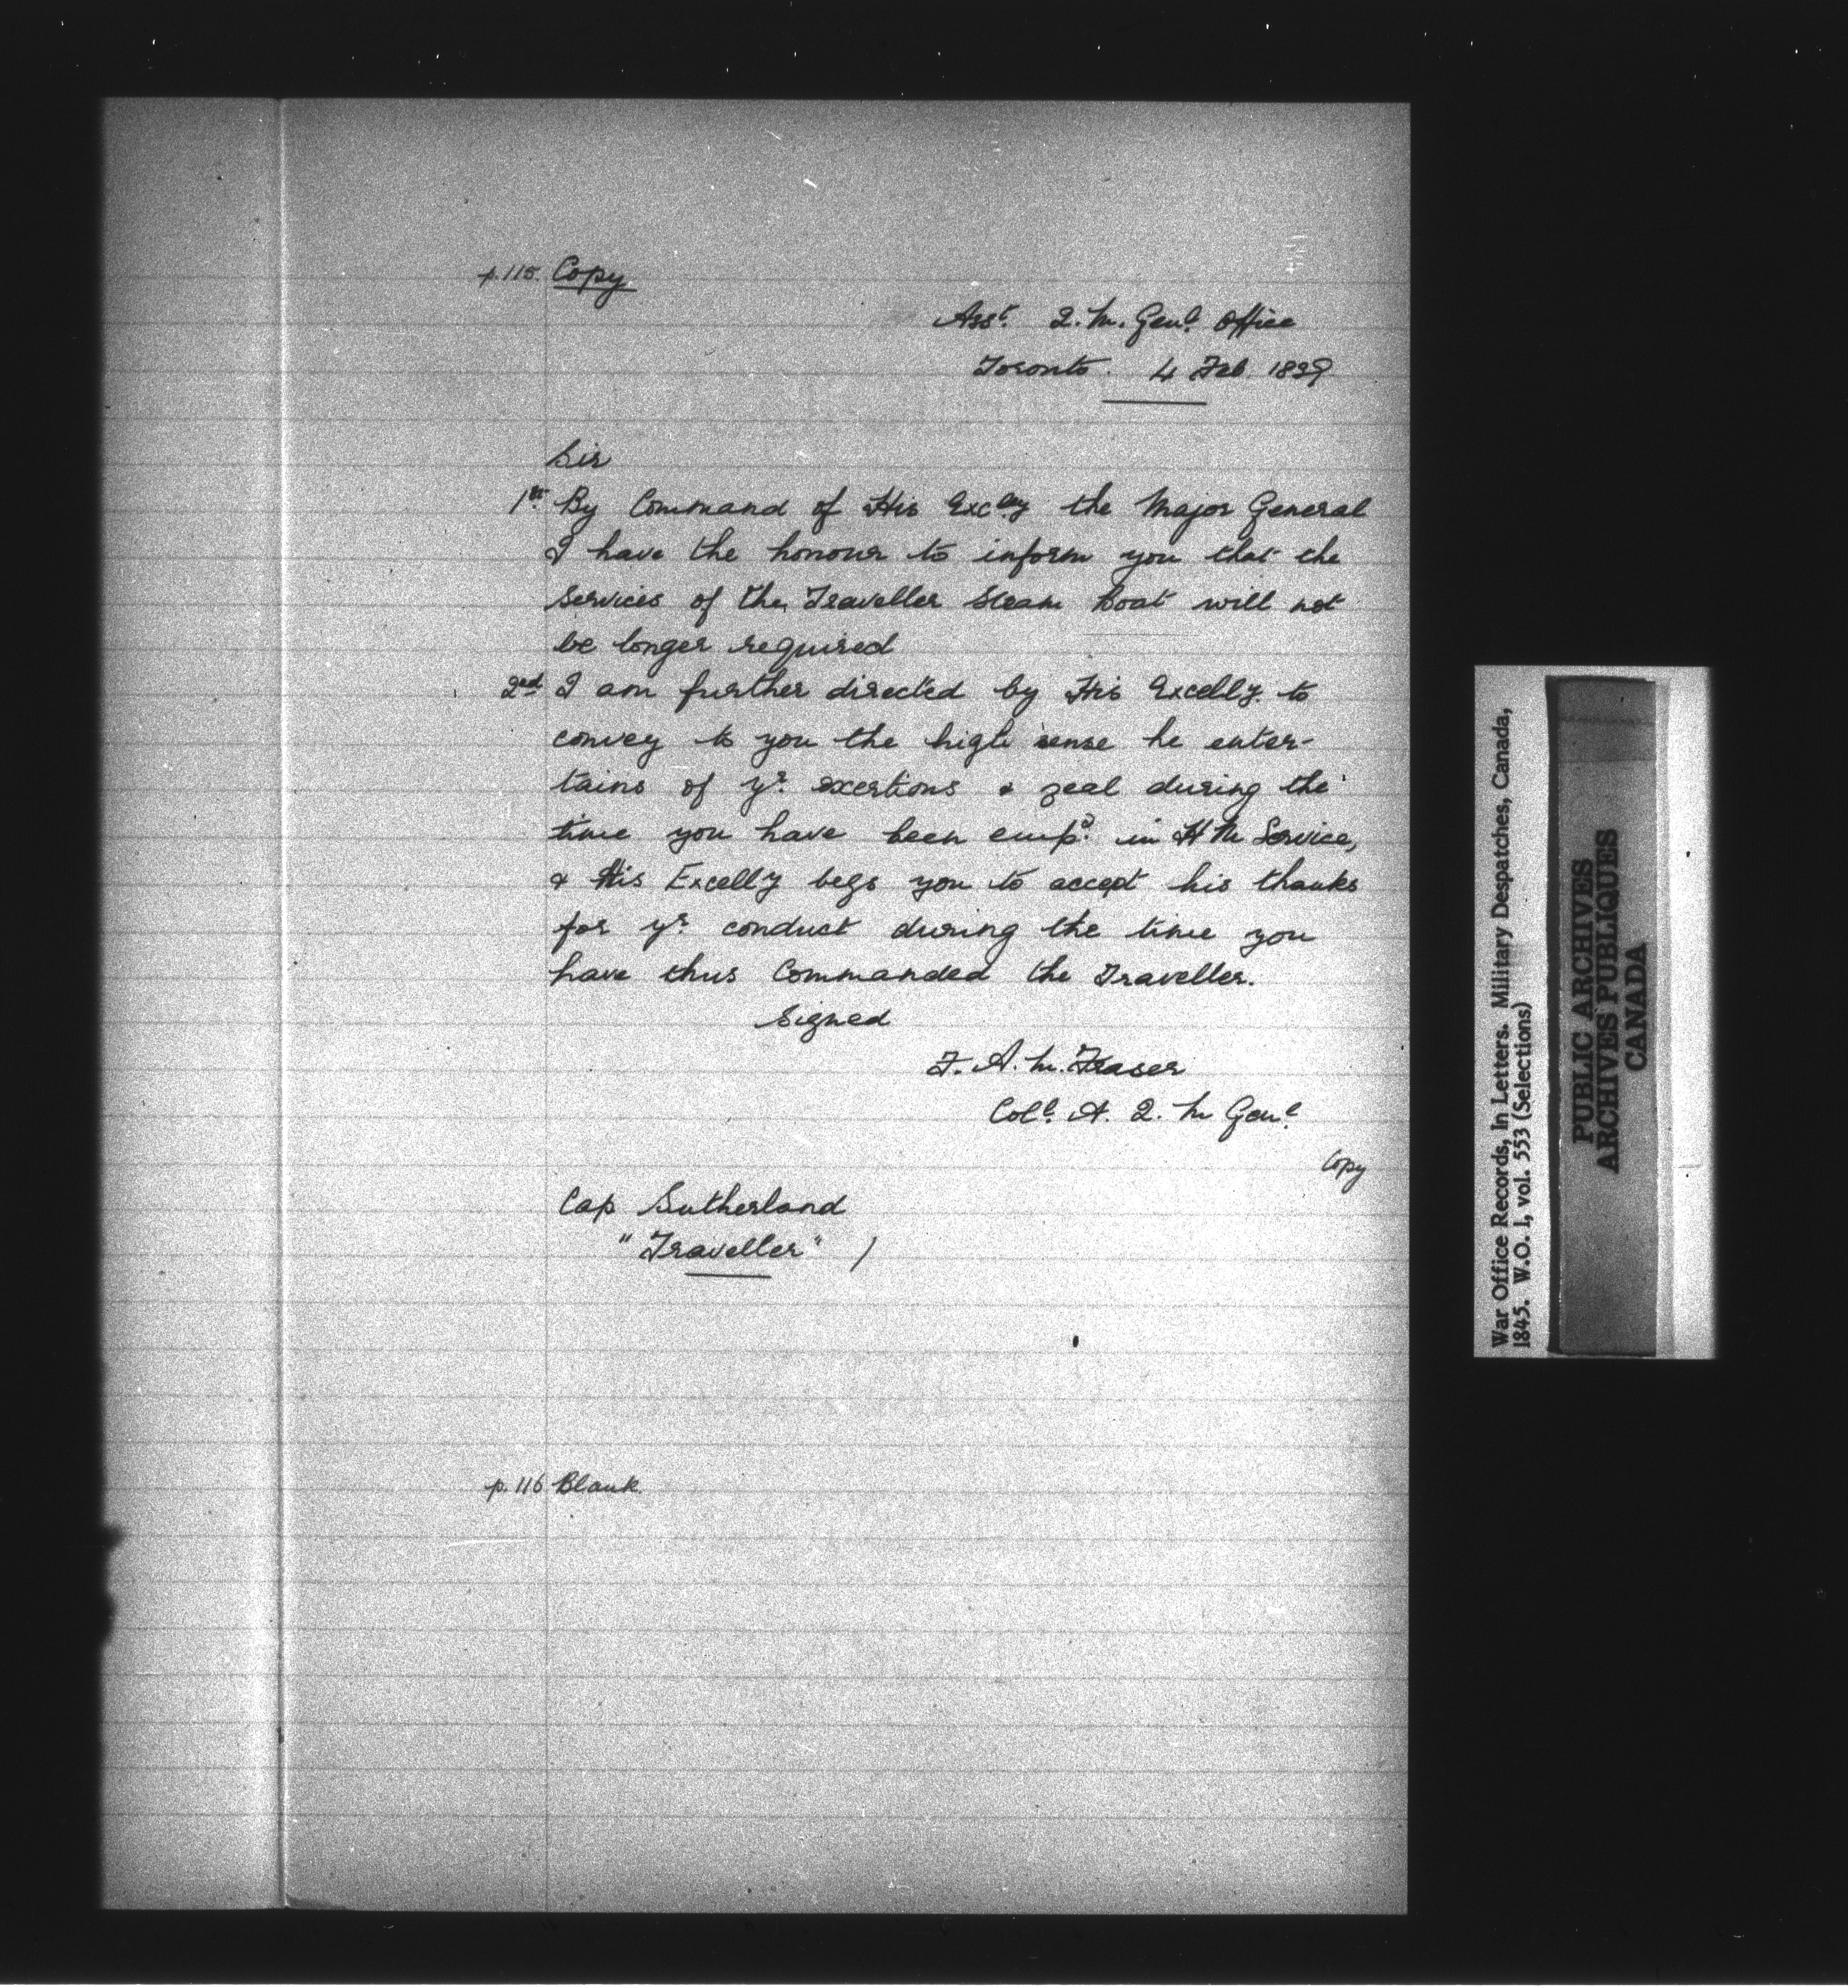 p.115. Copy
Asst. Q. M. Genl. Office
Toronto. 4 Feb. 1839
Sir
1st. By Command of His Excley the Major General
I have the honour to inform you that the
Services of the Traveller Steam Boat will not
be longer required
2nd I am further directed by His Excelly. to
convey to you the high sense he enter-
tains of yr. exertions & zeal during the
time you have been empd. in H M Service,
& His Excelly begs you to accept his thanks
for yr. conduct during the time you
have thus Commanded the Traveller.
Signed
F. A. M. Fraser
Coll. A. Q. M Genl.
Copy
Cap Sutherland
"Traveller" /
p. 116 Blank.
War Office Records, In Letters. Military Despatches, Canada,
1845. W.O. 1, vol. 553 (Selections)
PUBLIC ARCHIVES
ARCHIVES PUBLIQUES
CANADA